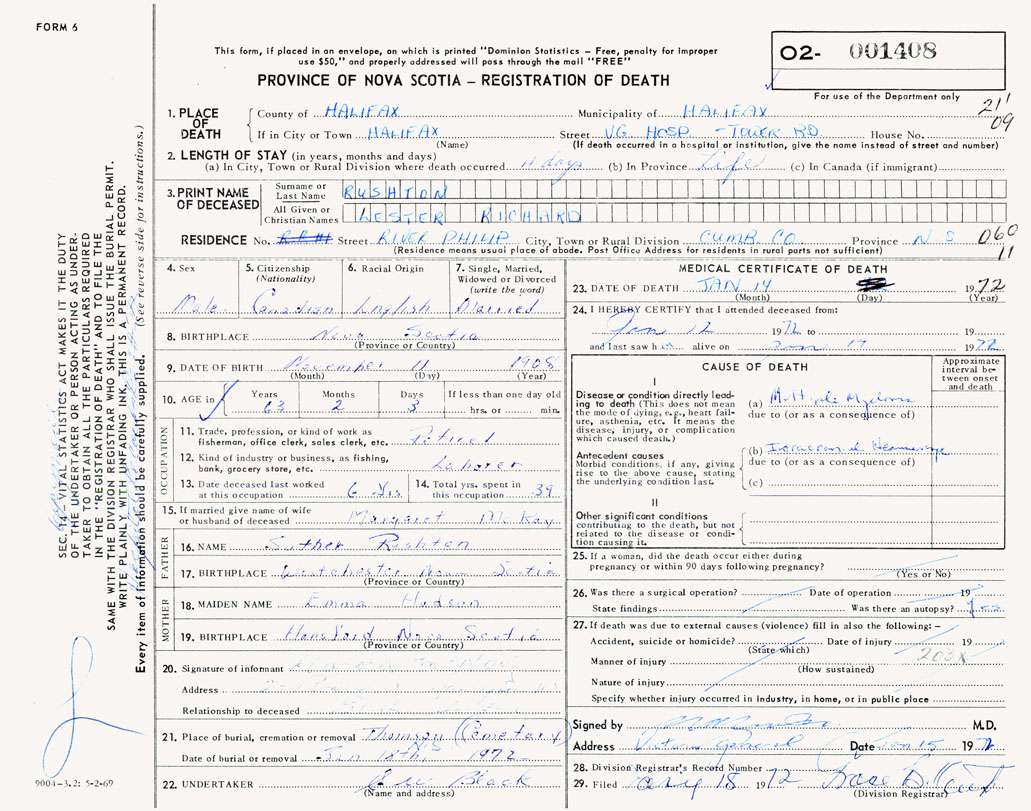 FORM 6
This form, if placed in an envelope, on which is printed "Dominion Statistics – Free, penalty for improper
use $50," and properly addressed will pass through the mail "FREE"
PROVINCE OF NOVA SCOTIA – REGISTRATION OF DEATH
02- 001408
For use of the Department only
21'
09
1. PLACE OF DEATH
County of HALIFAX Municipality of HALIFAX
If in City or Town HALIFAX Street V.G. HOSP. - TOWER RD. House No.
(Name) (If death occurred in a hospital or institution, give the name instead of street and number)
2. LENGTH OF STAY (in years, months and days)
(a) In City, Town or Rural Division where death occurred 11 days (b) In Province Life (c) In Canada (if immigrant)
3. PRINT NAME OF DECEASED
Surname or Last Name RUSHTON
All Given or Christian Names LESTER RICHARD
RESIDENCE No. R.R.#1 Street RIVER PHILIP City, Town or Rural Division CUMB. CO. Province N S 060
(Residence means usual place of abode. Post Office Address for residents in rural parts not sufficient) 11
4. Sex
Male
5. Citizenship (Nationality)
Canadian
6. Racial Origin
English
7. Single, Married, Widowed or Divorced (write the word)
Married
8. BIRTHPLACE Nova Scotia
(Province or Country)
9. DATE OF BIRTH November 11 1908
(Month) (Day) (Year)
10. AGE in Years Months Days If less than one day old
63 2 3 hrs. or min.
OCCUPATION
11. Trade, profession, or kind of work as
fisherman, office clerk, sales clerk, etc. Retired
12. Kind of industry or business, as fishing,
bank, grocery store, etc. Laborer
13. Date deceased last worked
at this occupation 6 Yrs
14. Total yrs. spent in
this occupation 39
15. If married give name of wife
or husband of deceased Margaret McKay
FATHER
16. NAME Suther Rushton
17. BIRTHPLACE Westchester Nova Scotia
(Province or Country)
MOTHER
18. MAIDEN NAME Emma Hudson
19. BIRTHPLACE Hansford Nova Scotia
(Province or Country)
20. Signature of informant
Address
Relationship to deceased
21. Place of burial, cremation or removal Thomson (Cemetery)
N.S
Date of burial or removal Jan 18th, 1972
22. UNDERTAKER Black
(Name and address)
MEDICAL CERTIFICATE OF DEATH
23. DATE OF DEATH JAN 14 1972
(Month) (Day) (Year)
24. I HEREBY CERTIFY that I attended deceased from:
Jan 12 1972 to 19
and last saw h alive on 1972
CAUSE OF DEATH
Approximate interval between onset and death
I
Disease or condition directly leading to death (This does not mean the mode of dying, e.g., heart failure, asthenia, etc. It means the disease, injury, or complication which caused death.)
(a) Multiple Myeloma
due to (or as a consequence of)
Antecedent causes
Morbid conditions, if any, giving rise to the above cause, stating the underlying condition last.
(b) Intracranial Hemorrhage
due to (or as a consequence of)
(c)
II
Other significant conditions
contributing to the death, but not related to the disease or condition causing it.
25. If a woman, did the death occur either during
pregnancy or within 90 days following pregnancy?
(Yes or No)
26. Was there a surgical operation? Date of operation 19
State findings Was there an autopsy? Yes
27. If death was due to external causes (violence) fill in also the following: –
Accident, suicide or homicide? Date of injury 19
(State which) 203X
Manner of injury
(How sustained)
Nature of injury
Specify whether injury occurred in industry, in home, or in public place
Signed by M.D.
Address Victoria General Date Jan 15 1972
28. Division Registrar's Record Number
29. Filed 18 1972
(Division Registrar)
SEC. 14 – VITAL STATISTICS ACT MAKES IT THE DUTY
OF THE UNDERTAKER OR PERSON ACTING AS UNDER-
TAKER TO OBTAIN ALL THE PARTICULARS REQUIRED
IN THE "REGISTRATION OF DEATH" AND TO FILE THE
SAME WITH THE DIVISION REGISTRAR WHO SHALL ISSUE THE BURIAL PERMIT.
WRITE PLAINLY WITH UNFADING INK, THIS IS A PERMANENT RECORD.
Every item of information should be carefully supplied. (See reverse side for instructions.)
9004-3.2: 5-2-69